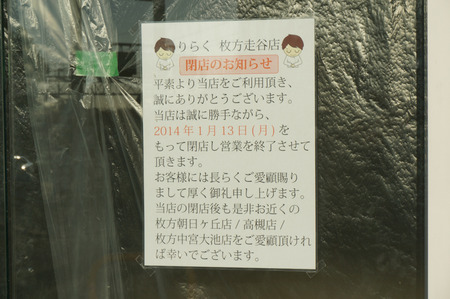 りらく 枚方走谷店
閉店のお知らせ
平素より当店をご利用頂き、
誠にありがとうございます。
当店は誠に勝手ながら、
2014年1月13日(月)を
もって閉店し営業を終了させて
頂きます。
お客様には長らくご愛顧賜り
まして厚く御礼申し上げます。
当店の閉店後も是非お近くの
枚方朝日ヶ丘店/高槻店/
枚方中宮大池店をご愛顧頂けれ
ば幸いでございます。